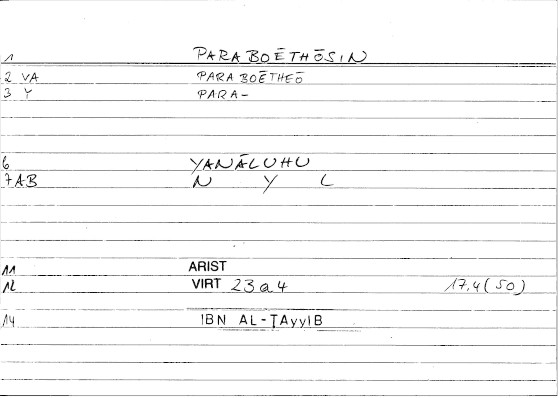 1 PARABOĒTHŌSIN
2 VA PARABOĒTHEŌ
3 Y PARA-
6 YANĀLUHU
7 AB N Y L
11 ARIST
12 VIRT 23a4 17,4(50)
14 IBN AL-ṬAyyIB